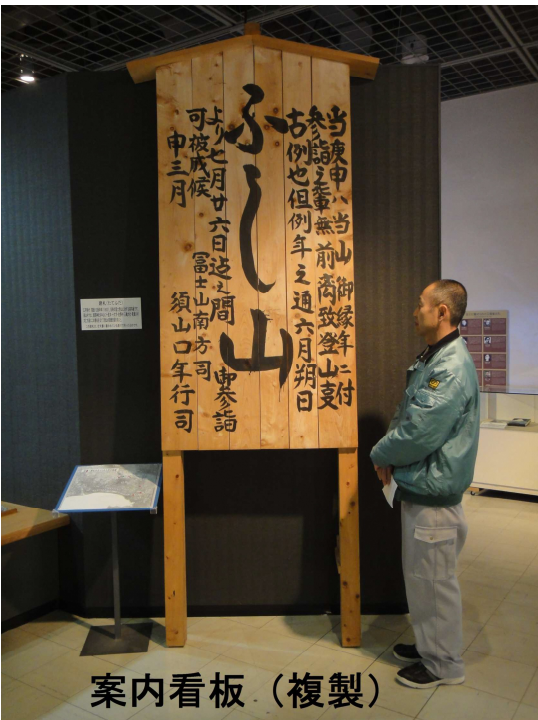 当庚申ハ当山御縁年ニ付
参詣之輩無前斎致登山支
古例也但例年之通六月朔日
ふし山
より七月廿六日迠之間御参詣
可被成候 冨士山南方司
申三月 須山口年行司
案内看板（複製）